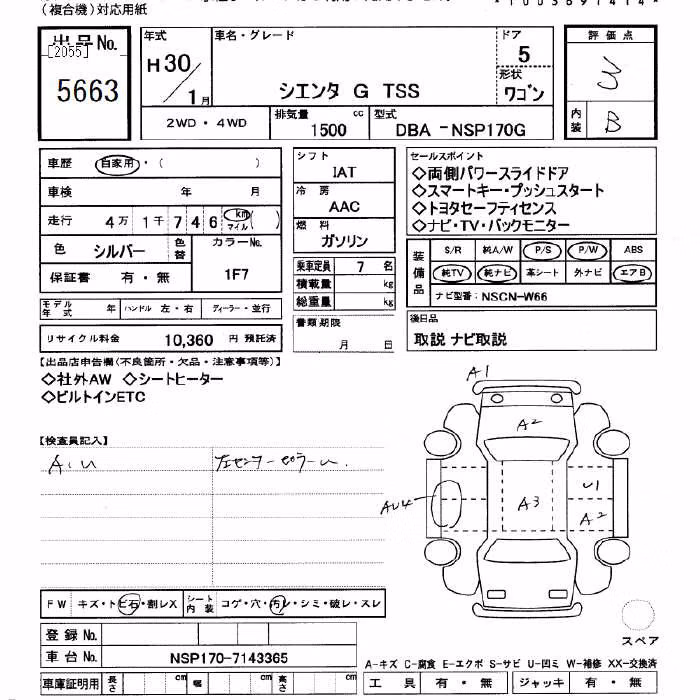 (複合機)対応用紙
*1003697414*
出品No.
[2055]
5663
年式
H30/1月
車名・グレード
シエンタ G TSS
ドア
5
形状
ワゴン
2WD・4WD
排気量 1500 cc
型式 DBA -NSP170G
評価点
3
内装 B
車歴 自家用・( )
車検 年 月
走行 4万1千746 km マイル( )
色 シルバー 色替
カラーNo. 1F7
保証書 有・無
モデル年式 年 ハンドル 左・右 ディーラー・並行
リサイクル料金 10,360 円 預託済
シフト
IAT
冷房
AAC
燃料
ガソリン
乗車定員 7 名
積載量 kg
総重量 kg
書類期限
月 日
セールスポイント
◇両側パワースライドドア
◇スマートキー・プッシュスタート
◇トヨタセーフティセンス
◇ナビ・TV・バックモニター
装備品
S/R 純A/W P/S P/W ABS
純TV 純ナビ 革シート 外ナビ エアB
ナビ型番: NSCN-W66
後日品
取説 ナビ取説
【出品店申告欄(不良箇所・欠品・注意事項等)】
◇社外AW ◇シートヒーター
◇ビルトインETC
【検査員記入】
A.U
左センターピラーU.
A1
A2
A3
U1
A2
AU4
FW キズ・トビ石・割レX
シート内装 コゲ・穴・汚レ・シミ・破レ・スレ
登録No.
車台No. NSP170-7143365
車庫証明用 長さ cm 幅 cm 高さ cm
スペア
A-キズ C-腐食 E-エクボ S-サビ U-凹ミ W-補修 XX-交換済
工具 有・無 ジャッキ 有・無